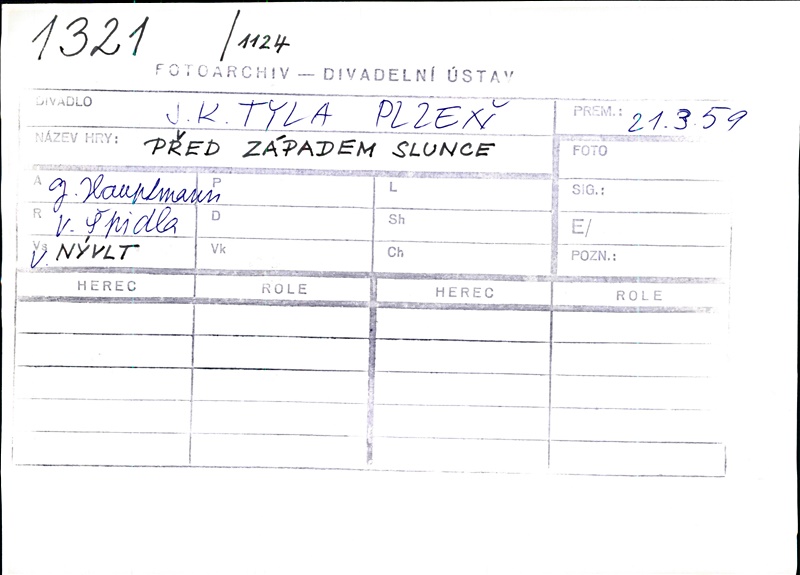 1321 /1124
FOTOARCHIV — DIVADELNÍ ÚSTAV
DIVADLO J.K. TYLA PLZEŇ PREM.: 21.3.59
NÁZEV HRY: PŘED ZÁPADEM SLUNCE FOTO
A G. Hauptmann P L SIG.:
R V. Špidla D Sh E/
Vs V. NÝVLT Vk Ch POZN.:
HEREC ROLE HEREC ROLE